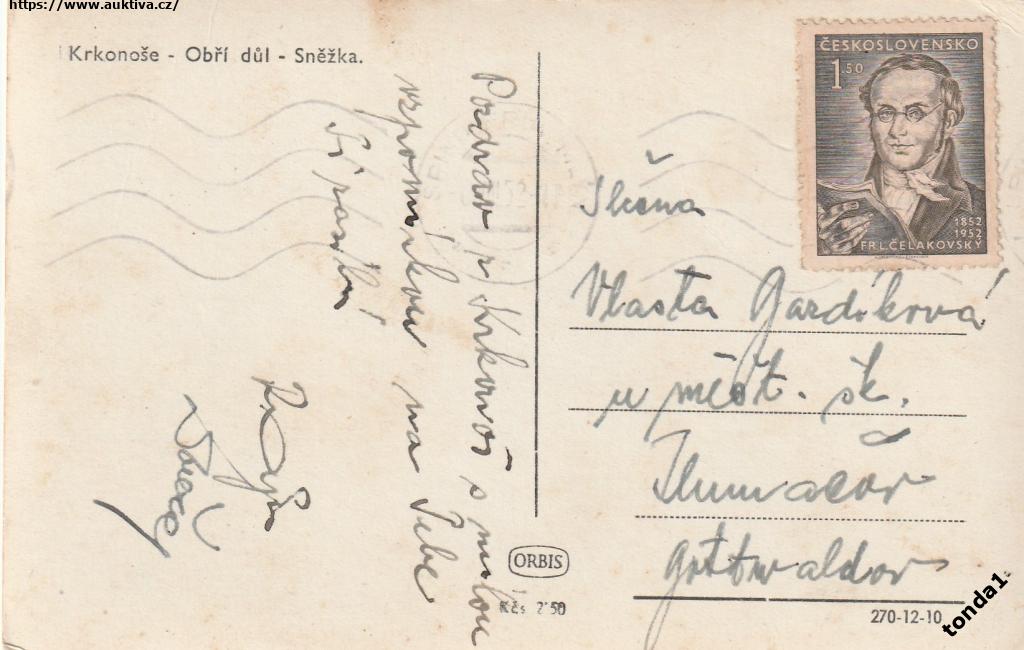 https://www.auktiva.cz/
Krkonoše - Obří důl - Sněžka.
Pozdrav z Krkonoš s milou
vzpomínkou na Tebe
Ti posílá
ČESKOSLOVENSKO
1.50
1852
1952
FR.L.ČELAKOVSKÝ
Vlasta Gardíková
u měšt. šk.
Tlumačov
Gottwaldov
ORBIS
Kčs 2'50
270-12-10
tonda1